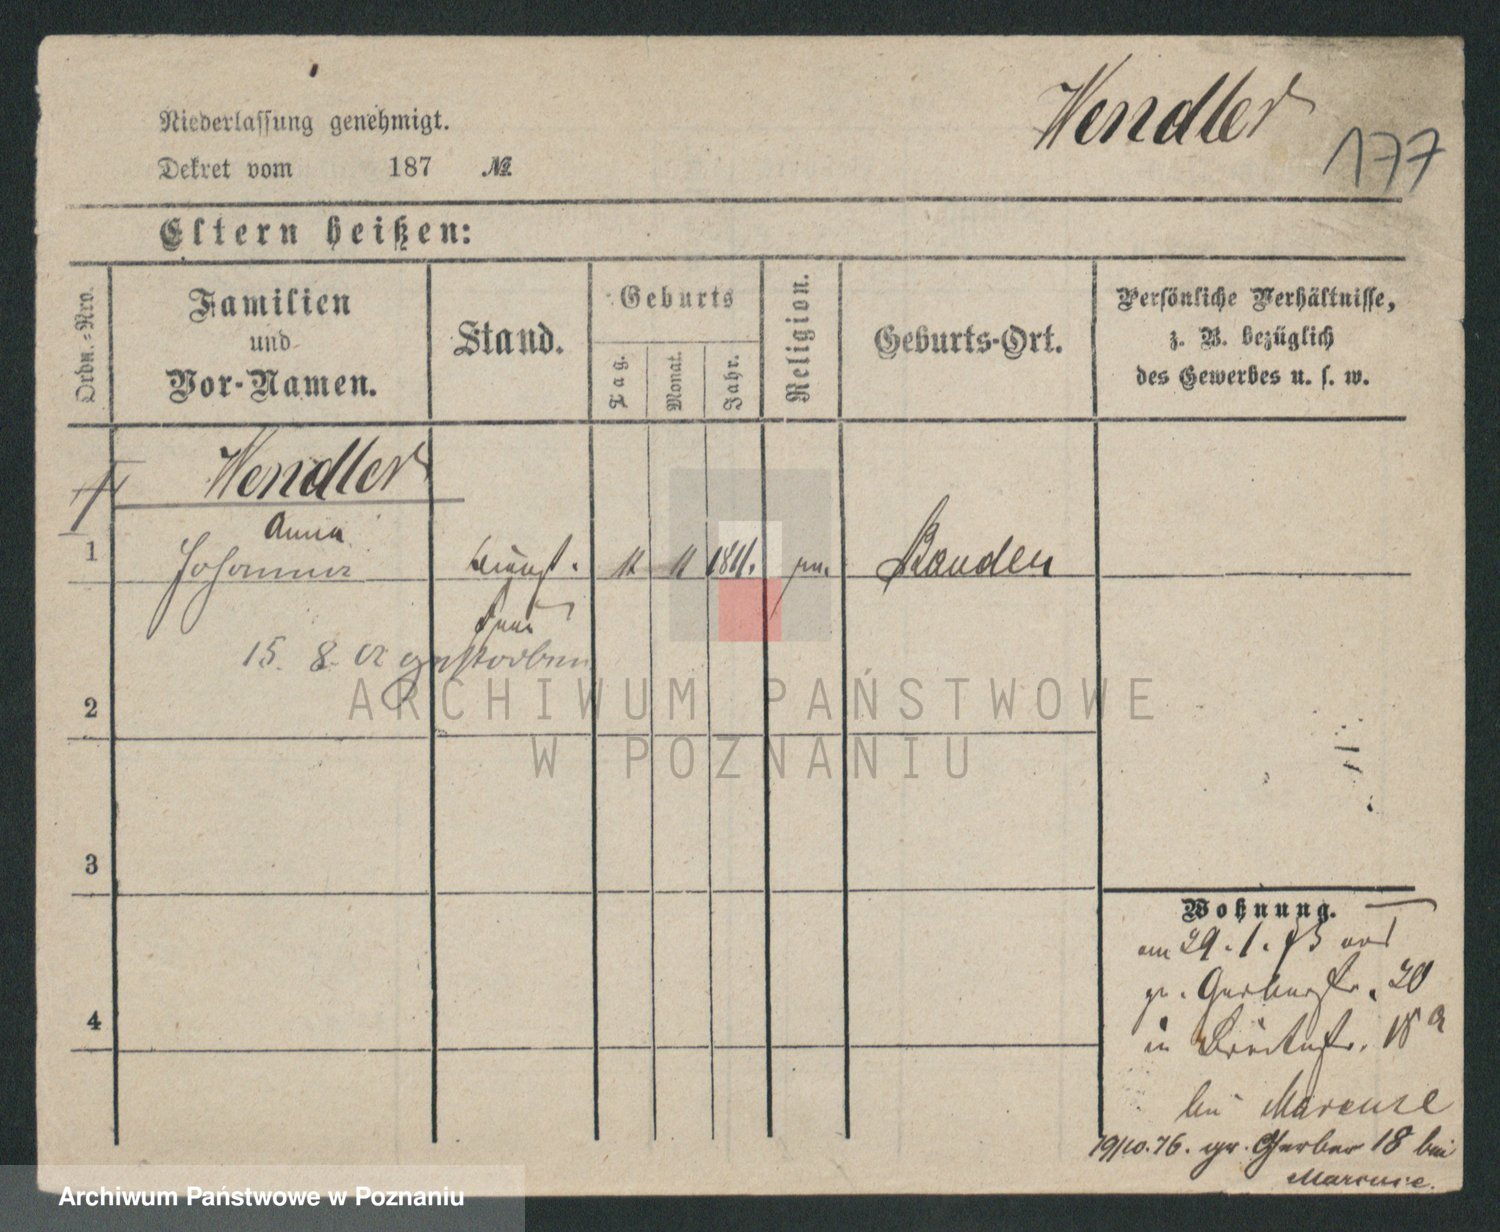 Wendler
177
Niederlassung genehmigt.
Dekret vom 187 №
Eltern heißen:
Ordn.-Nro.
Familien
und
Vor-Namen.
Stand.
Geburts
Tag.
Monat.
Jahr.
Religion.
Geburts-Ort.
Persönliche Verhältnisse,
z. B. bezüglich
des Gewerbes u. s. w.
Wendler
Anna
1 Johanna 11 11 1811.
15. 8. gestorben
ARCHIWUM PAŃSTWOWE
W POZNANIU
2
3
4
Wohnung.
am 29.1.73 aus
gr. Gerberstr. 20
in Breitestr. 18 a
bei Marcuse
19/10.76. gr. Gerber 18 bei
Marcuse.
Archiwum Państwowe w Poznaniu